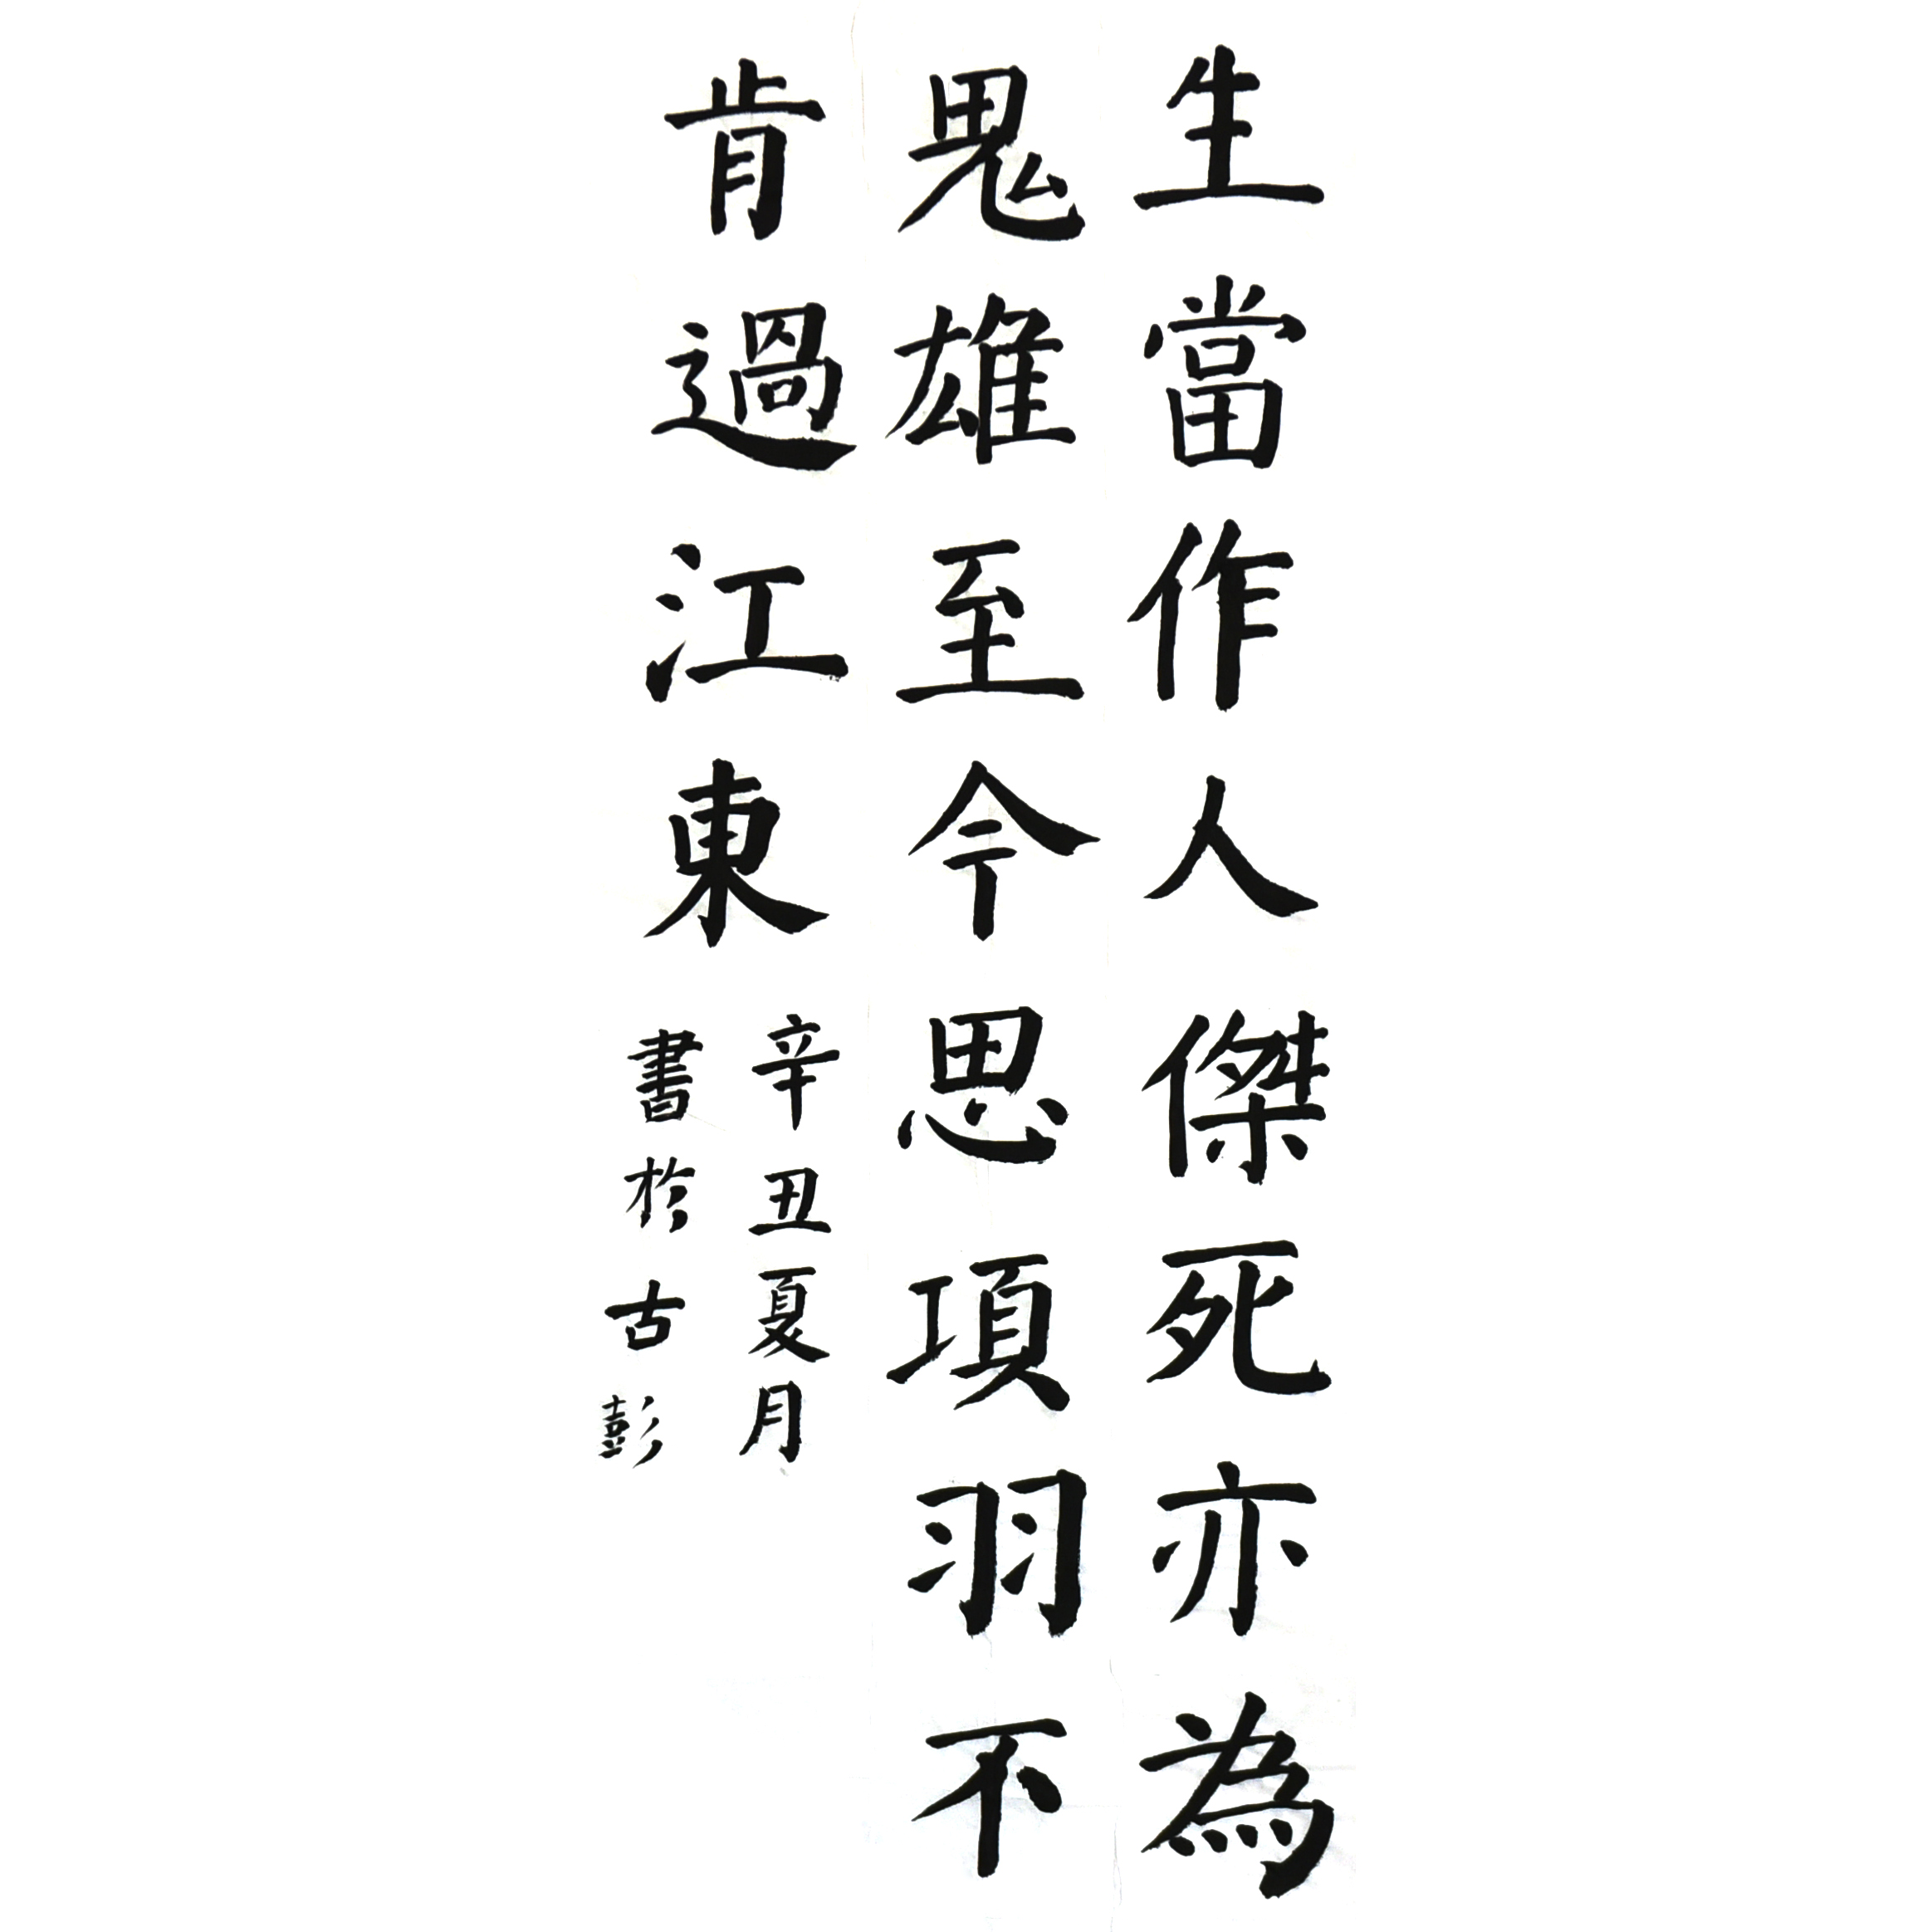 生當作人傑死亦為
鬼雄至今思項羽不
肯過江東
辛丑夏月
書於古彭